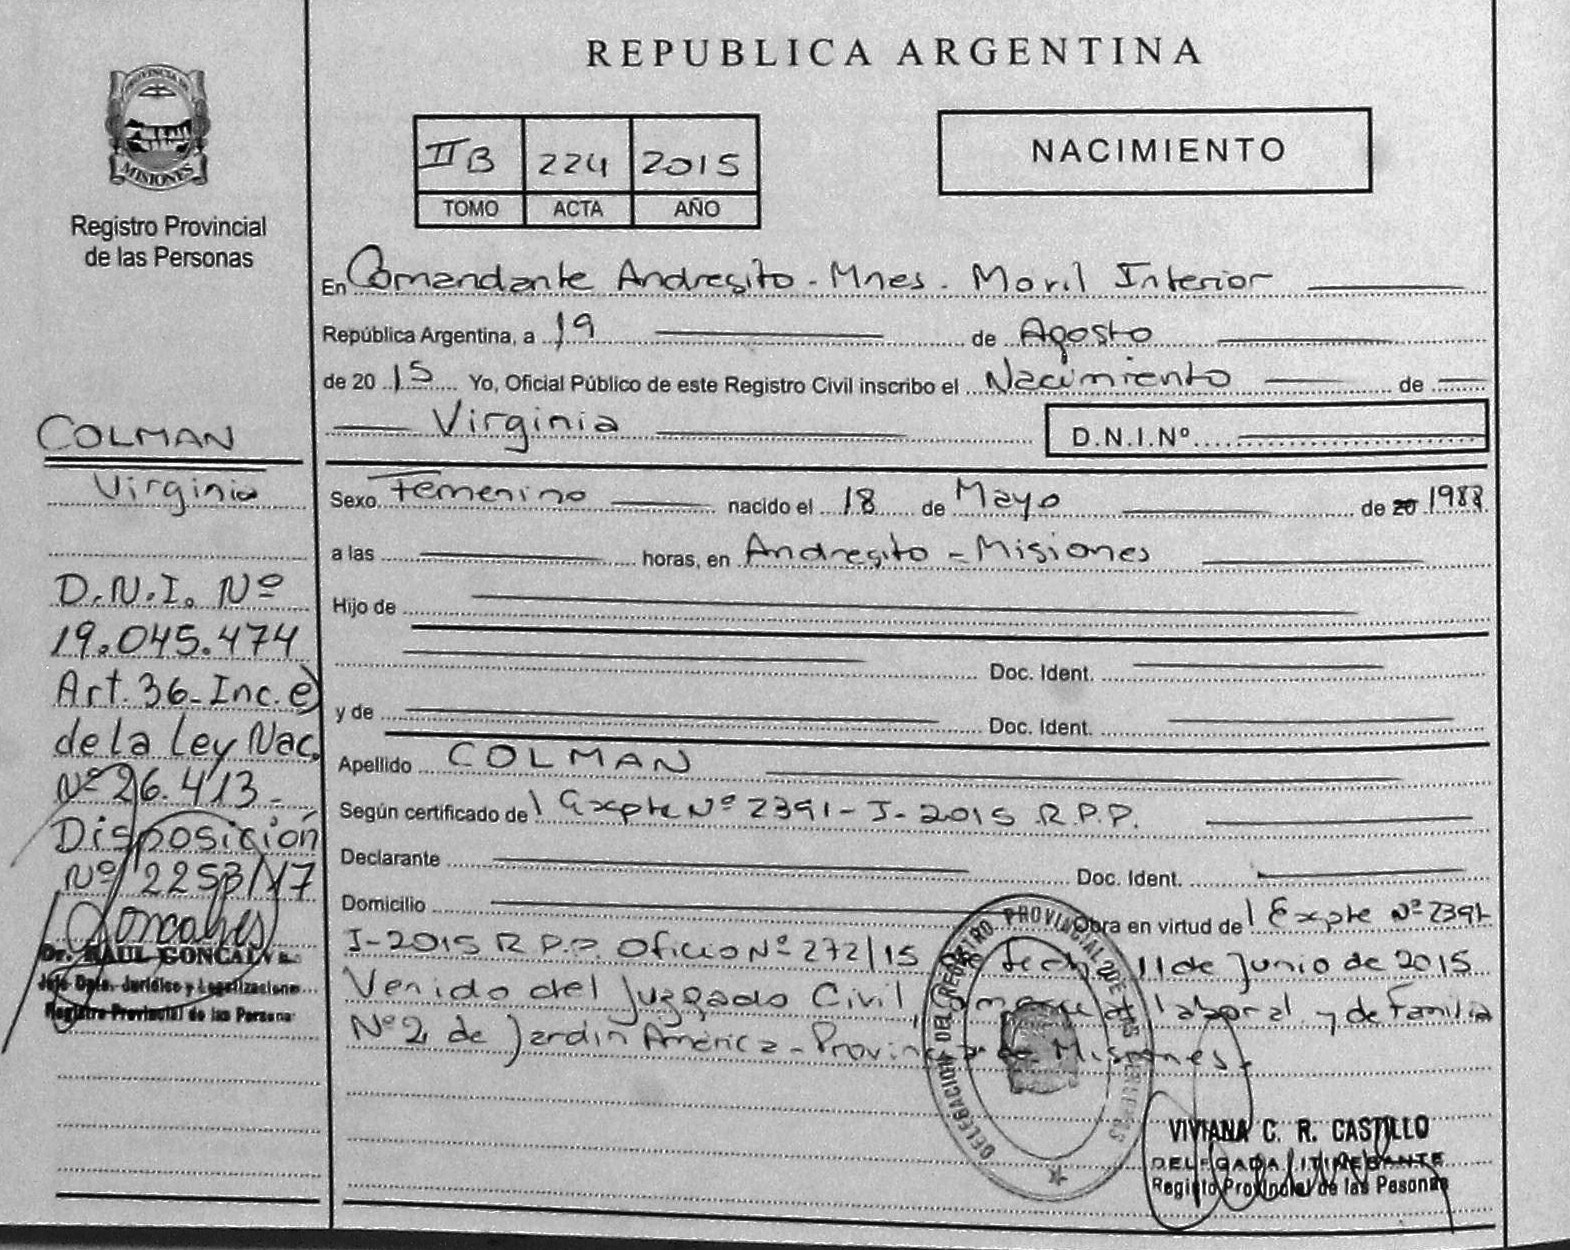 REPUBLICA ARGENTINA
PROVINCIA DE
MISIONES
Registro Provincial
de las Personas
II B 224 2015
TOMO ACTA AÑO
NACIMIENTO
En Comandante Andresito - Mnes. Movil Interior
República Argentina, a 19 de Agosto
de 20 15 Yo, Oficial Público de este Registro Civil inscribo el Nacimiento de
Virginia
D.N.I.Nº
Sexo Femenino nacido el 18 de Mayo de 20 1988
a las horas, en Andresito - Misiones
Hijo de
Doc. Ident.
y de Doc. Ident.
Apellido COLMAN
Según certificado de Expte Nº 2391 - I - 2015 R.P.P.
Declarante Doc. Ident.
Domicilio Obra en virtud de Expte Nº 2391
I-2015 R.P.P. Oficio Nº 272/15 de fecha 11 de Junio de 2015
Venido del Juzgado Civil, Comercial laboral y de Familia
Nº 2 de Jardin America - Provincia de Misiones.
DELEGACION DEL REGISTRO PROVINCIAL DE LAS PERSONAS
VIVIANA C. R. CASTILLO
DELEGADA ITINERANTE
Registro Provincial de las Pesonas
COLMAN
Virginia
D.N.I. Nº
19.045.474
Art. 36 - Inc. e)
de la Ley Nac.
Nº 26.413 -
Disposición
Nº 2253/17
Dr. RAUL GONCALVES
Jefe Dpto. Jurídico y Legalizaciones
Registro Provincial de las Personas